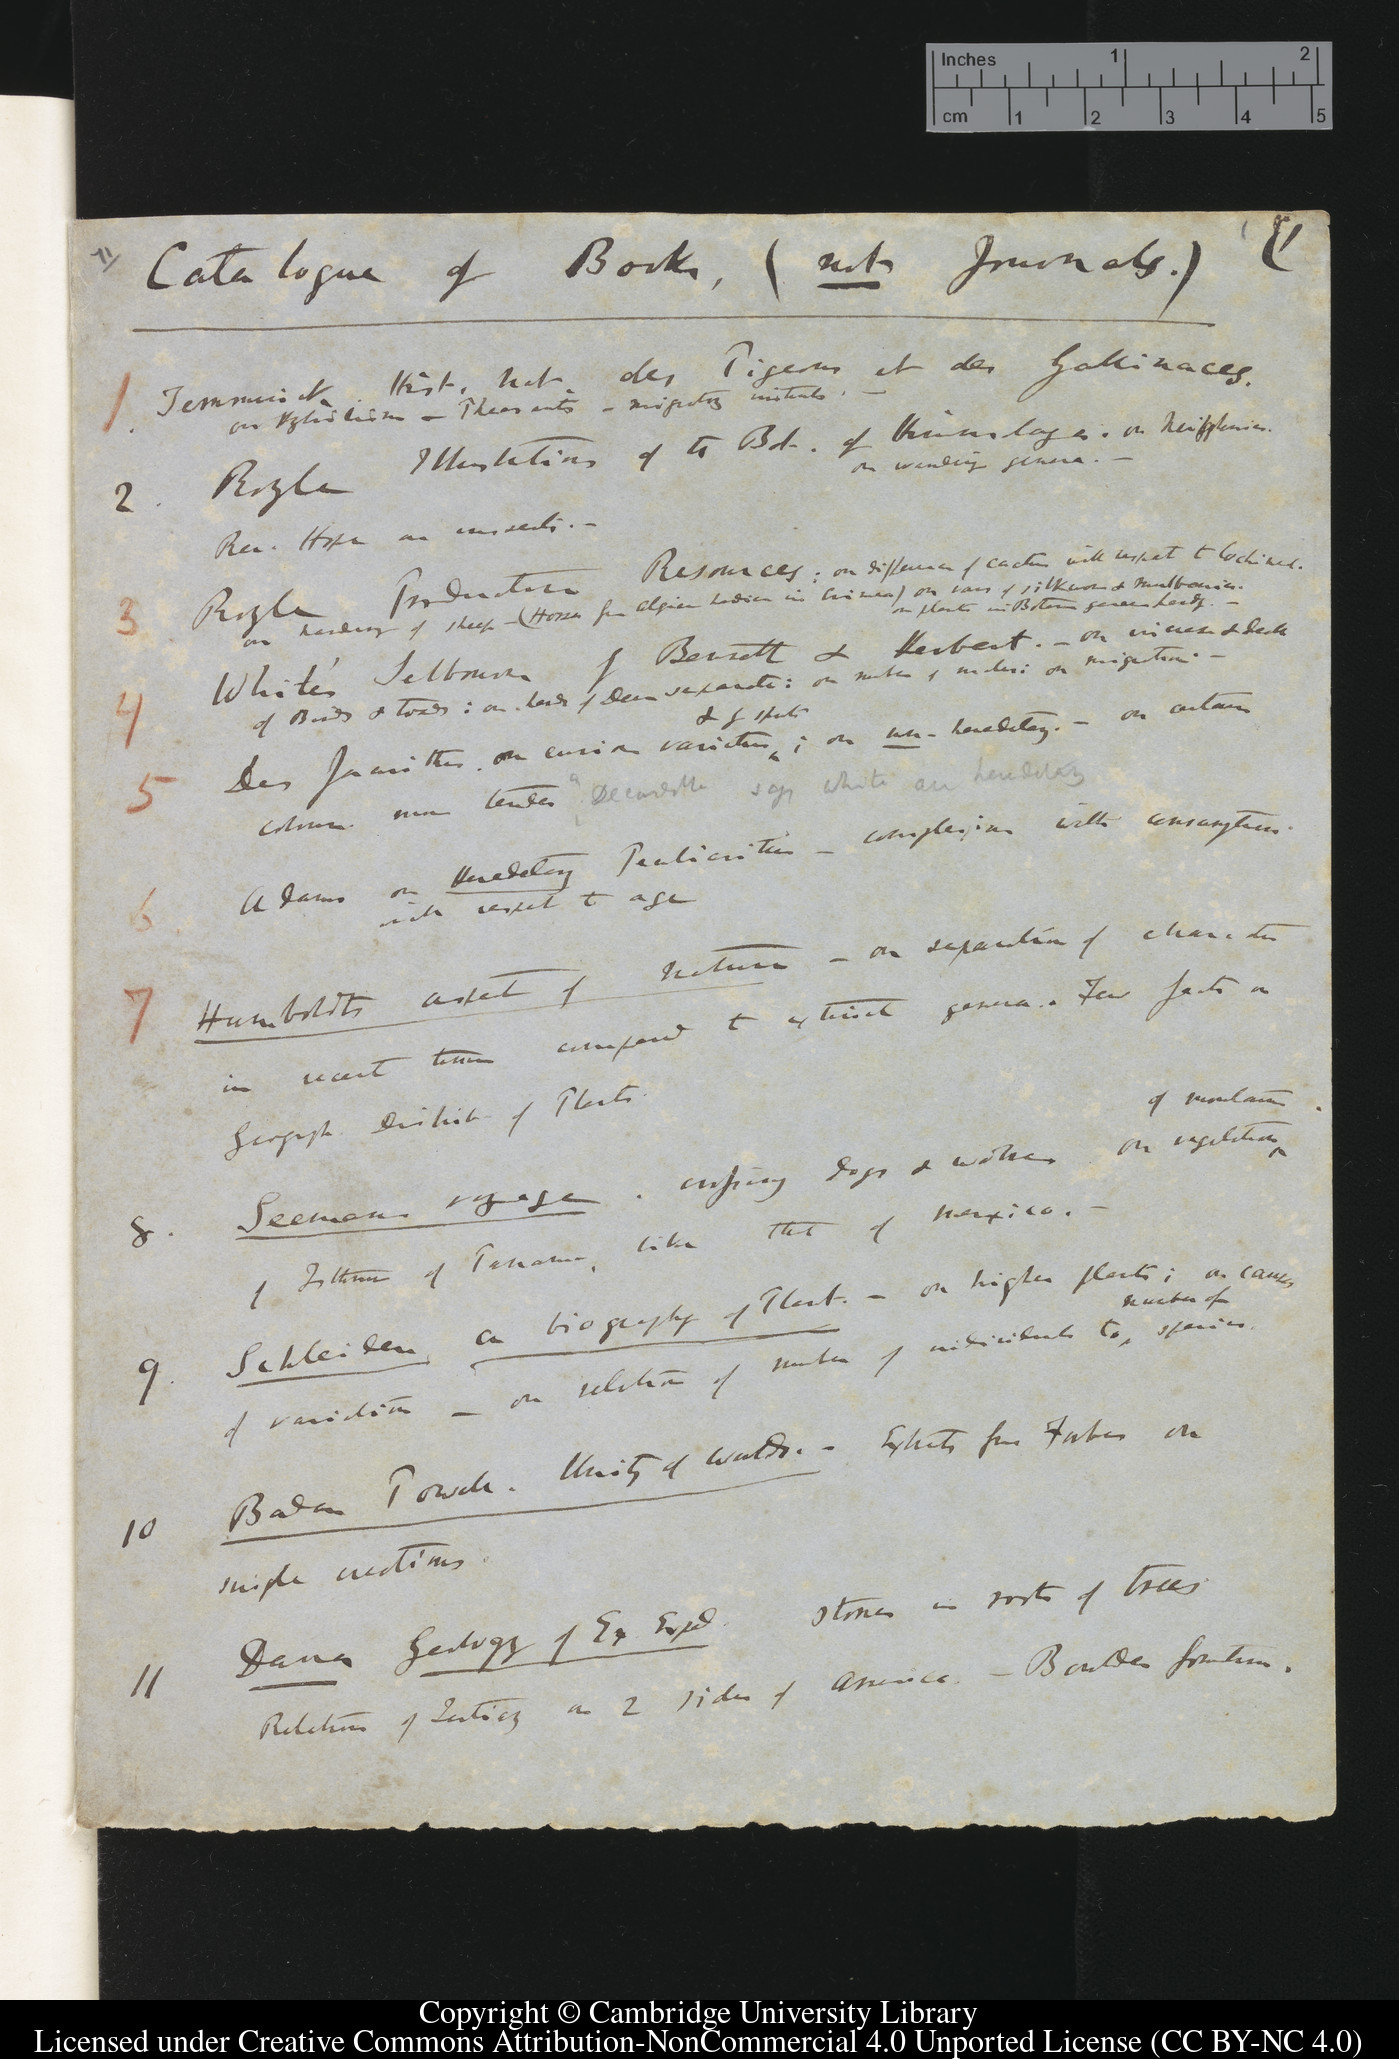 Inches 1 2
cm 1 2 3 4 5
Catalogue of Books, (not Journals.)
1. Temminck Hist. Nat. des Pigeons et des Gallinaces.
on Hybridism — Pheasants — migratory instincts. —
2. Royle Illustrations of the Bot. of Himalaya. on
on wandering genera. —
Rev. Hope on insects. —
3 Royle Productive Resources; on difference of cactus with respect to Cochineal.
on hardiness of sheep — (Horses from in Crimea) on vars of silkworm & mulberries.
on plants in Botanic garden hardy. —
4 White's Selbourne by Bennett & Herbert. — on increase & death
of Birds & toads: on herds of Deer separate: on number of males: on migration —
5 Des Jacinthes. on curious varieties & of spots; on un-hereditary. — on certain
colours more tender Decandolle says white are hereditary
6. Adams on Hereditary Peculiarities — complexion with consumption.
with respect to age
7 Humboldts aspect of nature — on separation of character
in recent times compared to extinct genera. Few facts on
Geograph. Distrib. of Plants.
8. Seemans voyage. crossing dogs & wolves on vegetation of mountains.
of Isthmus of Panama, like that of Mexico. —
9. Schleiden on biography of Plant. — on higher plants; on causes
of variation — on relation of number of individuals to number of species.
10 Baden Powell. Unity of worlds. — Extracts from Forbes on
single creations.
11 Dana Geology of Ex. Exped. stones in roots of trees
Relation of Tertiary on 2 sides of America. — Boulder formation.
Copyright © Cambridge University Library
Licensed under Creative Commons Attribution-NonCommercial 4.0 Unported License (CC BY-NC 4.0)